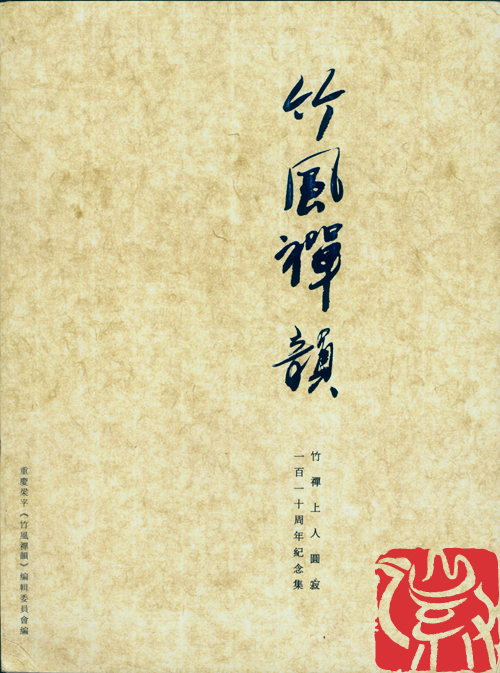 竹風禪韻
竹禪上人圓寂
一百一十周年紀念集
重慶梁平《竹風禪韻》編輯委員會編